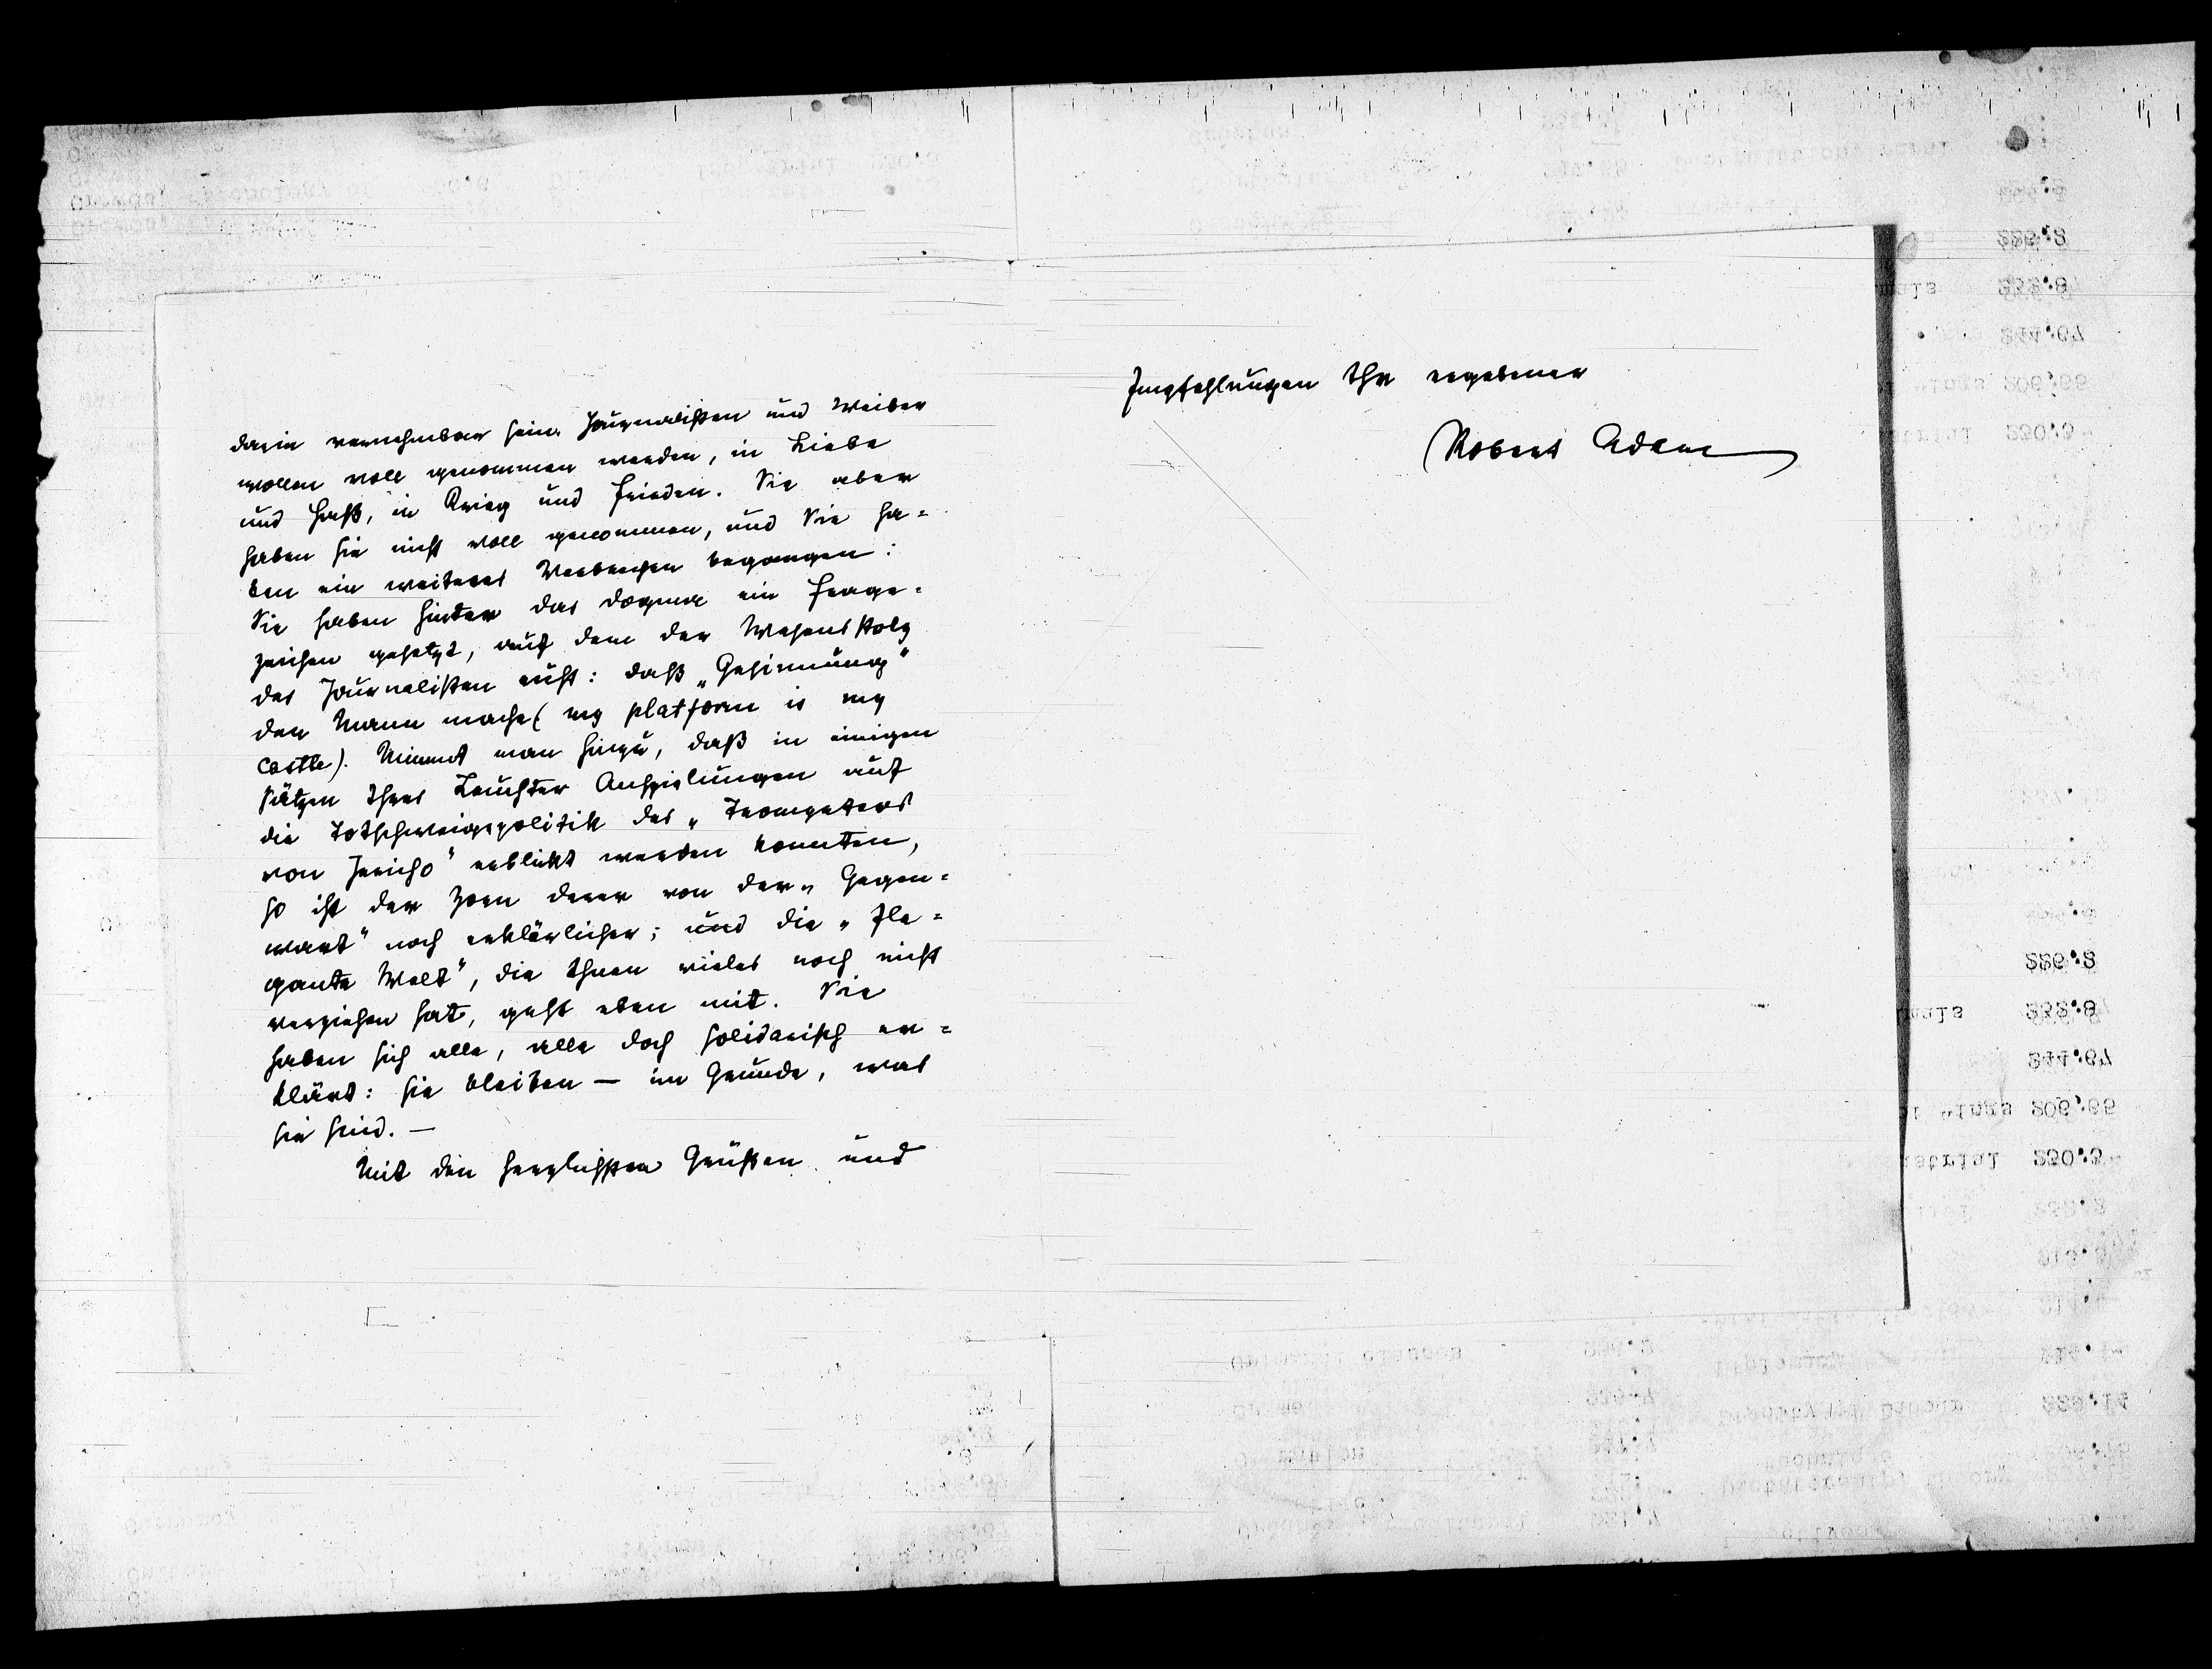 darin vernehmbar sein. Journalisten und Weiber
wollen voll genommen werden, in Liebe
und Haß, in Krieg und Frieden. Sie aber
haben sie nicht voll genommen, und Sie ha=
ben ein weiteres Verbrechen begangen:
Sie haben hinter das Dogma ein Frage=
zeichen gesetzt, auf dem der Wesensstolz
des Journalisten ruht: daß „Gesinnung"
den Mann mache (my platform is my
castle). Nimmt man hinzu, daß in einigen
Sätzen Ihres Leuchter Anspielungen auf
die Totschweigepolitik des „Trompeters
von Jericho" erblickt werden konnten,
so ist der Zorn derer von der „Gegen=
wart" noch erklärlicher; und die „Ele=
gante Welt", die Ihnen vieles noch nicht
verziehen hat, geht eben mit. Sie
haben sich alle, alle doch solidarisch er=
klärt: sie bleiben — im Grunde, was
sie sind. —
Mit den herzlichsten Grüßen und
Empfehlungen Ihr ergebener
Robert Adam